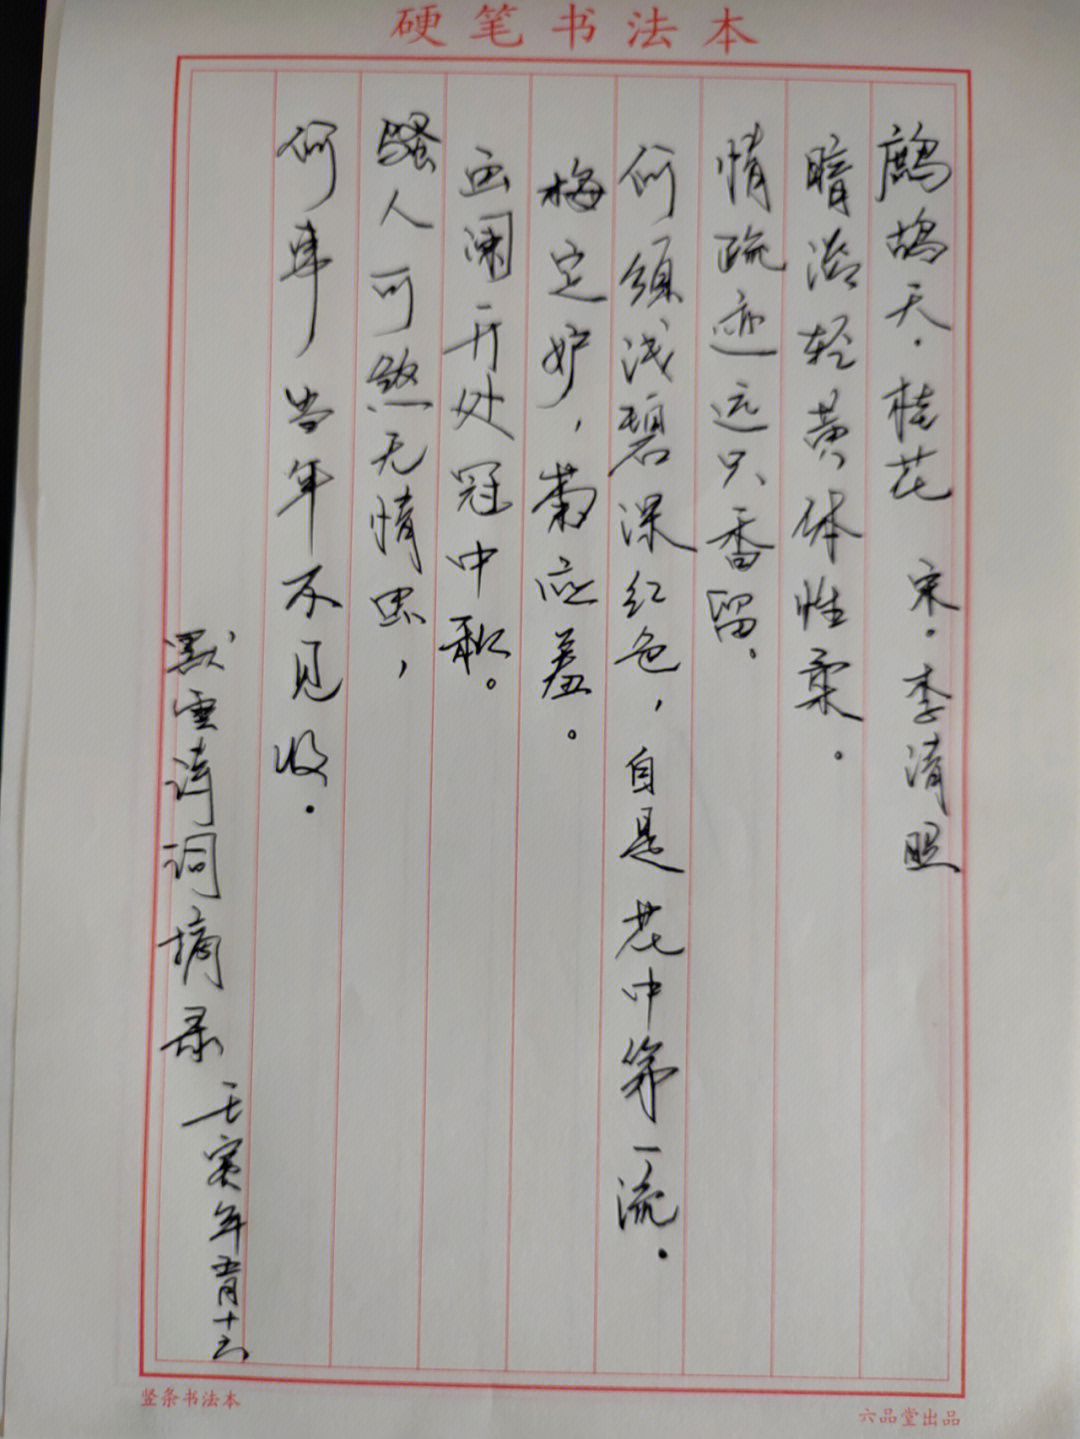 硬笔书法本
鹧鸪天·桂花 宋·李清照
暗淡轻黄体性柔。
情疏迹远只香留。
何须浅碧深红色，自是花中第一流。
梅定妒，菊应羞。
画阑开处冠中秋。
骚人可煞无情思，
何事当年不见收。
默雪诗词摘录 壬寅年五月十六
竖条书法本
六品堂出品